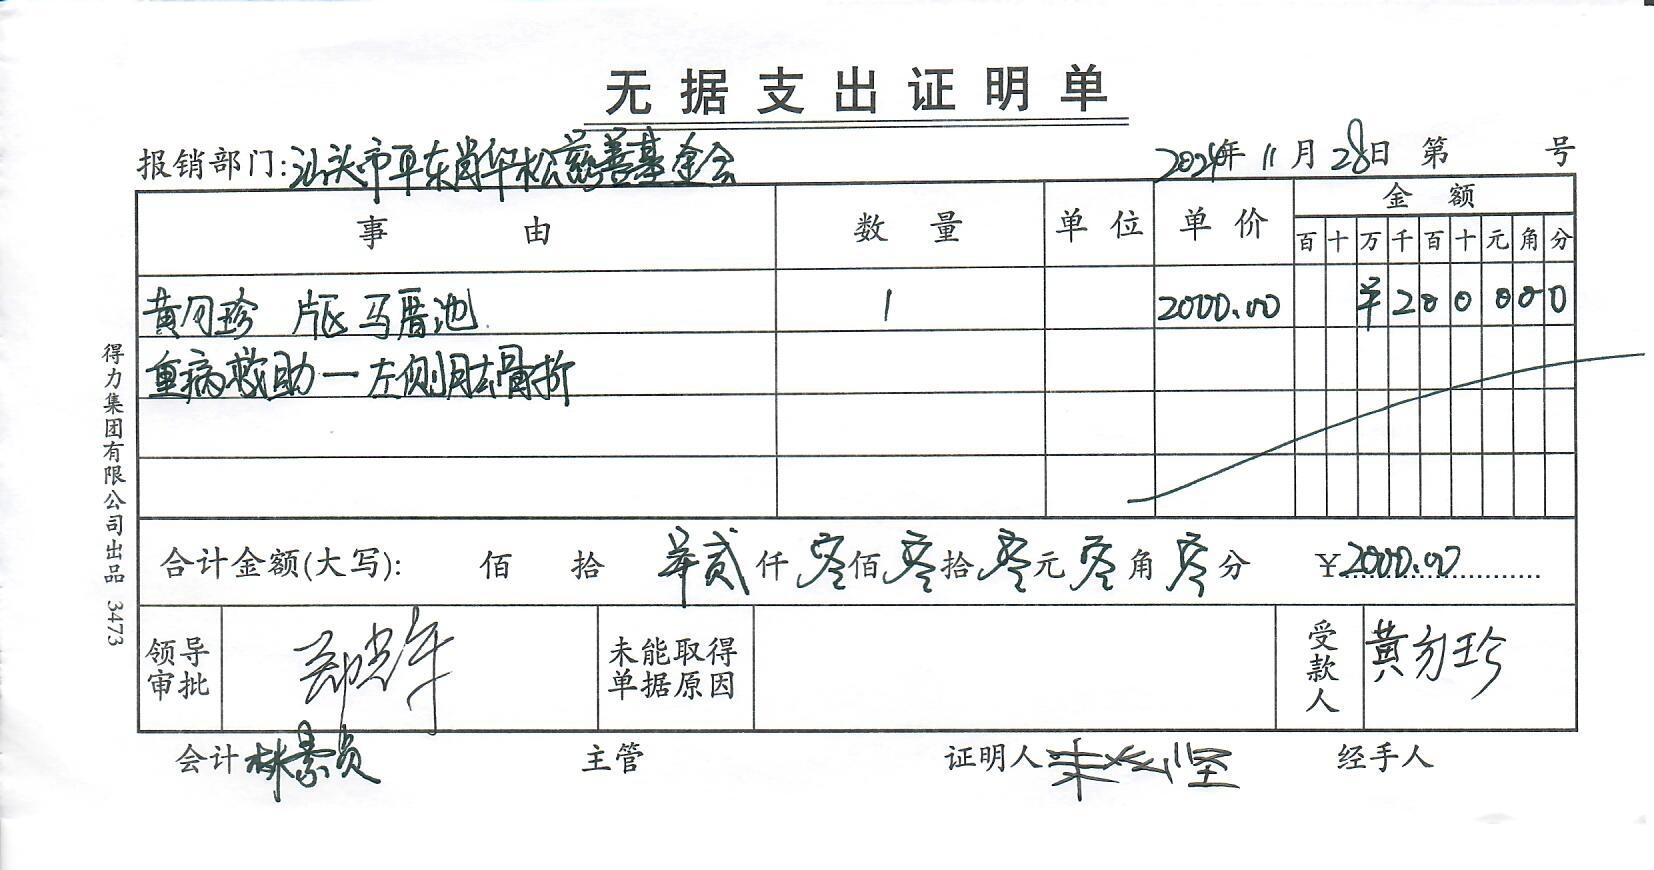 无据支出证明单
报销部门:汕头市平东肖华松慈善基金会 2024年11月28日 第 号
事由 数量 单位 单价 金额
百十万千百十元角分
黄 珍 片区 马厝池 1 2000.00 ¥200000
重病救助一左侧肱骨折
合计金额(大写): 佰 拾 贰仟零佰零拾零元零角零分 ¥2000.00
领导审批 未能取得单据原因 受款人 黄 珍
会计 林素贞 主管 证明人 坚 经手人
得力集团有限公司出品 3473